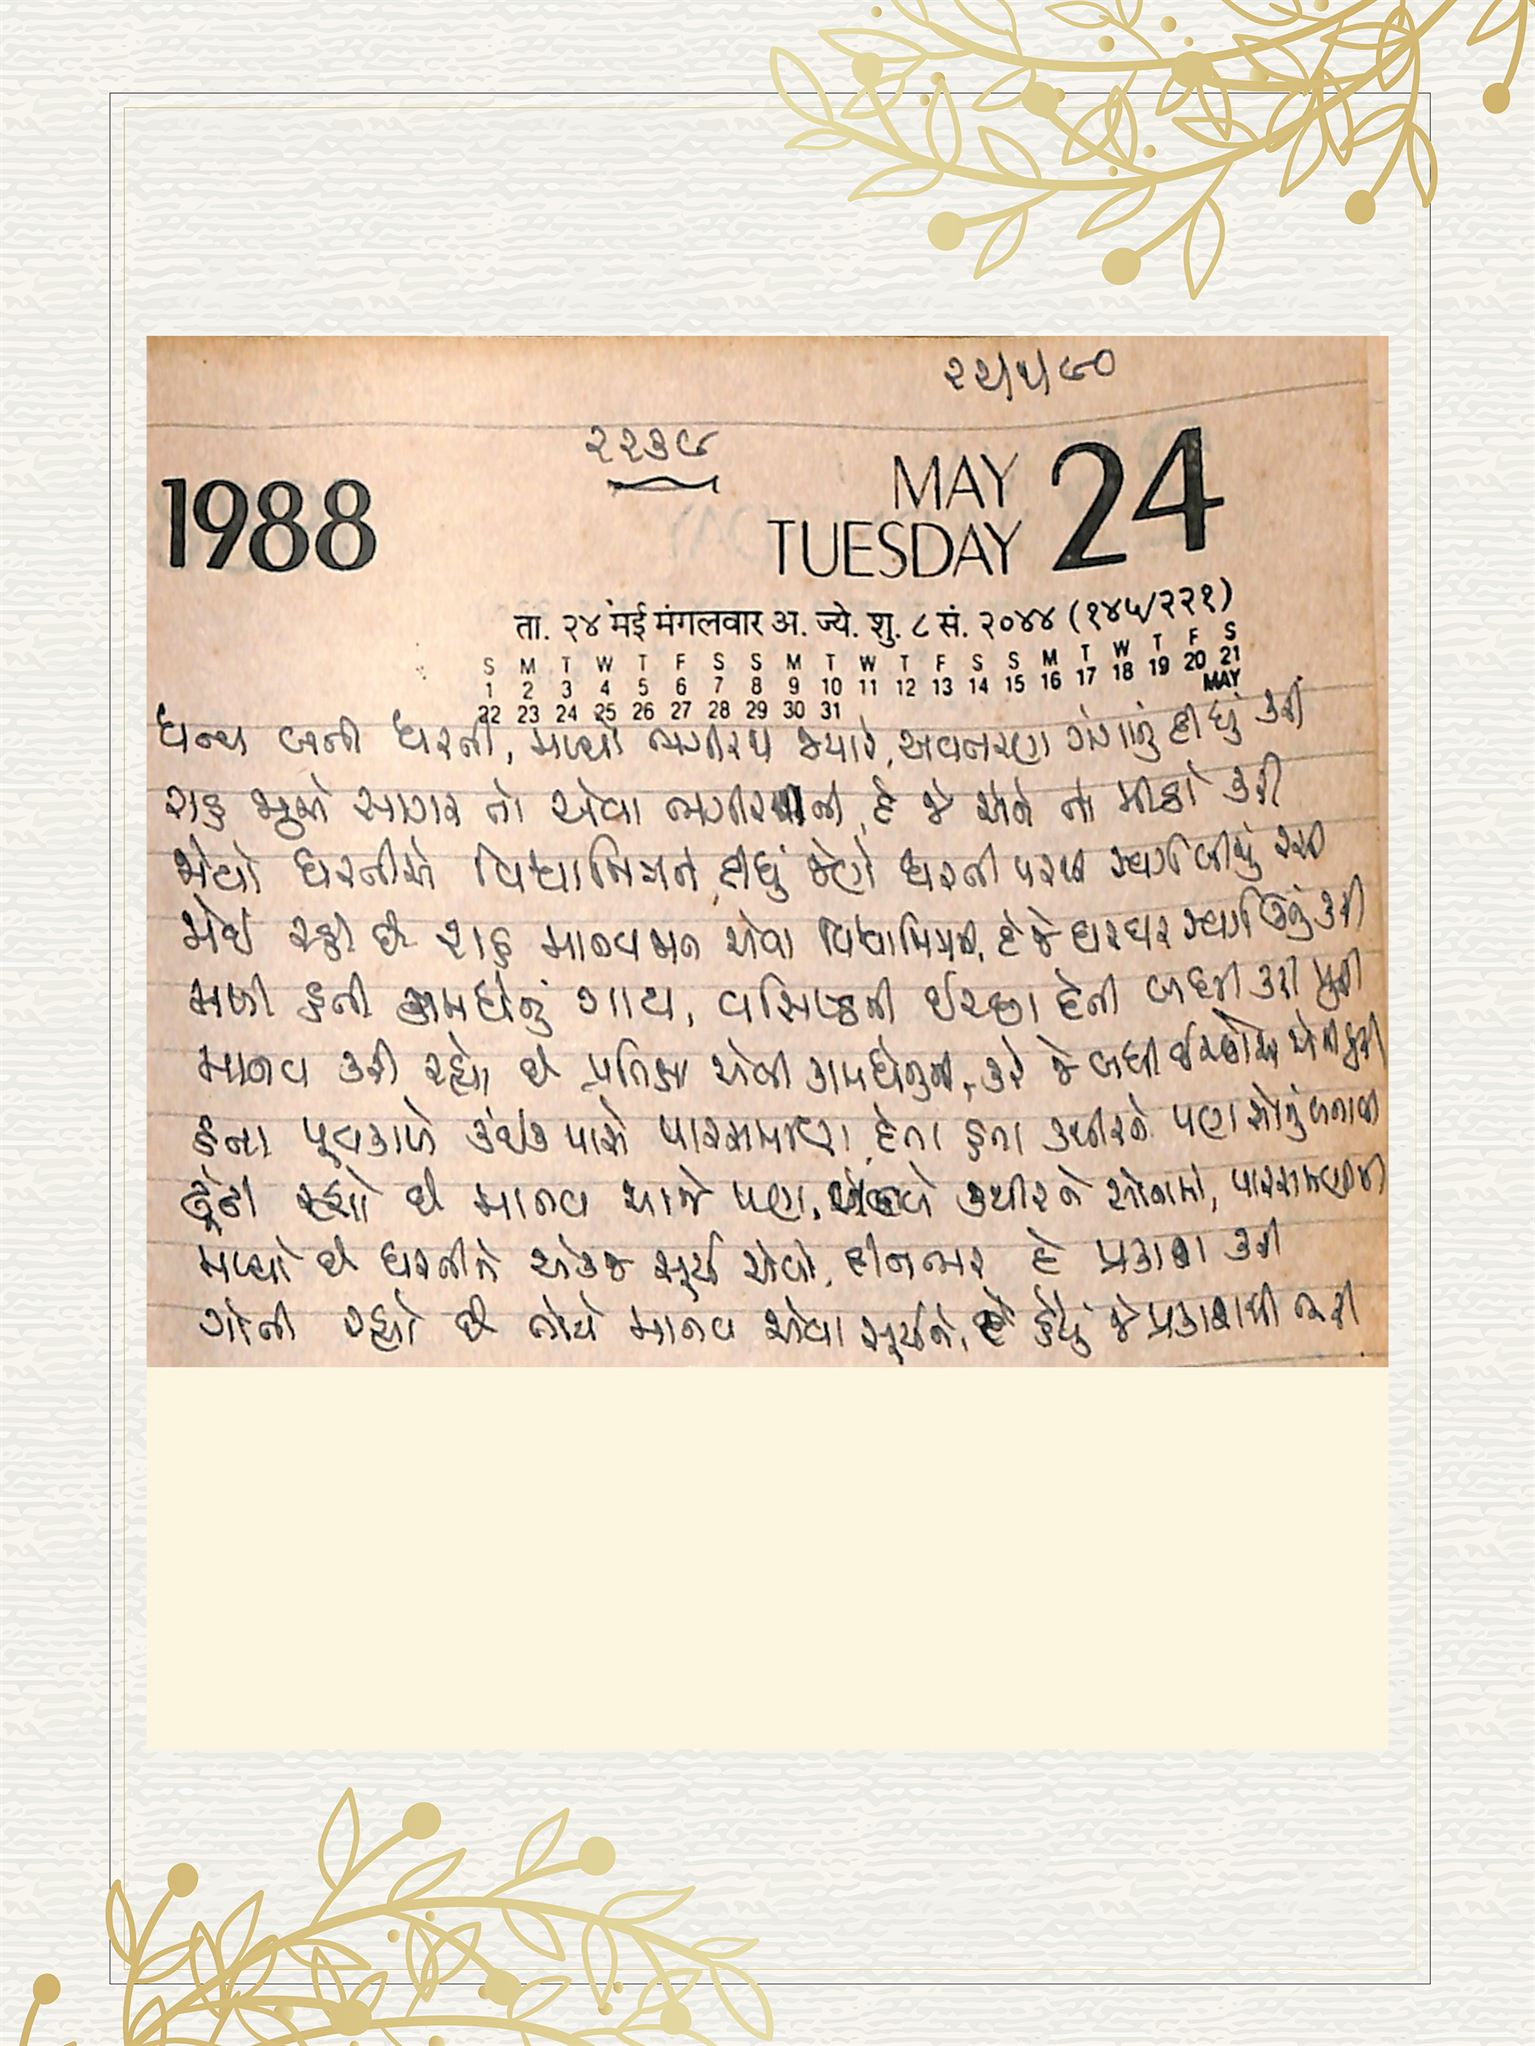 ૨૨/૫/૯૦
૨૨૩૯
1988
MAY 24
TUESDAY
ता. २४ मई मंगलवार अ. ज्ये. शु. ८ सं. २०४४ (१४५/२२१)
S M T W T F S S M T W T F S S M T W T F S
1 2 3 4 5 6 7 8 9 10 11 12 13 14 15 16 17 18 19 20 21
MAY
22 23 24 25 26 27 28 29 30 31
ધન્ય બની ધરતી, મળ્યો ભગીરથ જ્યારે, અવતરણ ગંગાનું દીધું કરી
રાહ જુએ સાગર તો એવા ભગીરથની, દે જે એને તો મીઠો કરી
જોયો ધરતીએ વિશ્વામિત્રને, દીધું જેણે ધરતી પરથી સ્વર્ગ બીજું રચી
જોઈ રહી છે રાહ માનવમન એવા વિશ્વામિત્રની, દે જે ઘરઘર સ્વર્ગ ઊભું કરી
મળી હતી કામધેનું ગાય, વસિષ્ઠની ઈચ્છા દેતી બધી કરી પુરી
માનવ કરી રહ્યો છે પ્રતિક્ષા એવી કામધેનુની, કરે જે બધી ઈચ્છાઓ એની પુરી
હતા પૂર્વકાળે કંઈક પાસે પારસમણિ, દેતા હતા કથીરને પણ સોનું બનાવી
ઢૂંઢી રહ્યો છે માનવ આજે પણ, કથીરને સોનામાં, પારસમણિની
મળ્યો છે ધરતીને એકજ સૂર્ય એવો, દીનભર દે પ્રકાશ કરી
ગોતી રહ્યો છે તોયે માનવ એવા સૂર્યને, દે હૈયું જે પ્રકાશથી ભરી